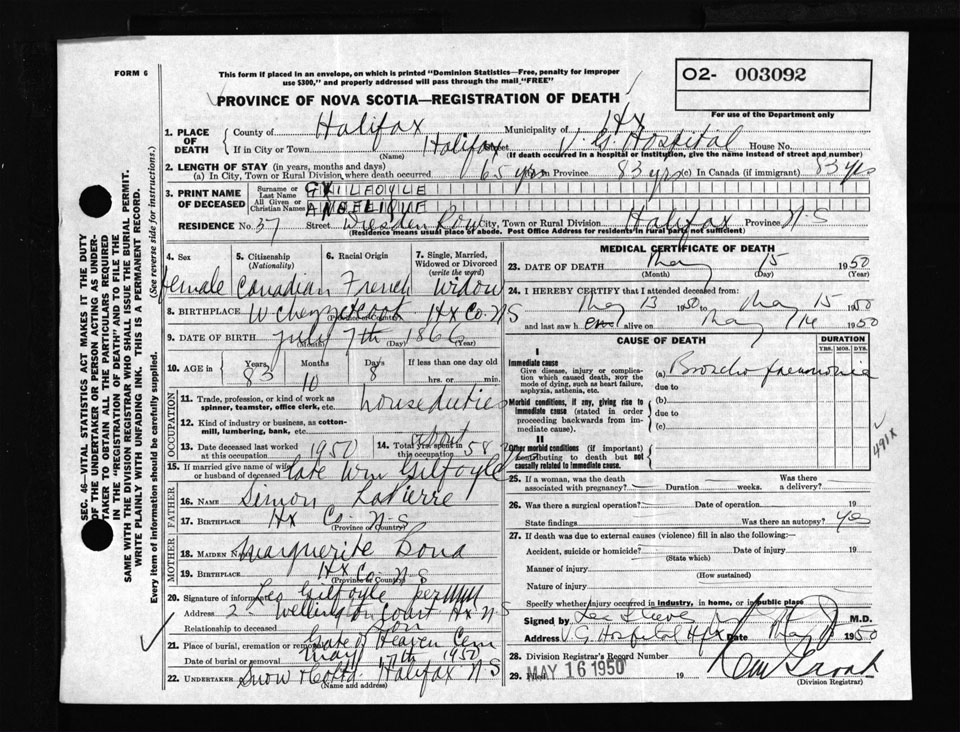 FORM 6
This form if placed in an envelope, on which is printed "Dominion Statistics—Free, penalty for improper
use $300," and properly addressed will pass through the mail "FREE"
O2- 003092
For use of the Department only
PROVINCE OF NOVA SCOTIA—REGISTRATION OF DEATH
1. PLACE OF DEATH { County of Halifax Municipality of Hx
If in City or Town Halifax Street V. G. Hospital House No.
(Name) (If death occurred in a hospital or institution, give the name instead of street and number)
2. LENGTH OF STAY (in years, months and days)
(a) In City, Town or Rural Division where death occurred 65 yrs (b) In Province 83 yrs (c) In Canada (if immigrant) 83 yrs
3. PRINT NAME OF DECEASED { Surname or Last Name GUILFOYLE
All Given or Christian Names ANGELIQUE
RESIDENCE No. 37 Street City, Town or Rural Division Halifax Province N.S
(Residence means usual place of abode. Post Office Address for residents in rural parts not sufficient)
4. Sex female
5. Citizenship (Nationality) Canadian
6. Racial Origin French
7. Single, Married, Widowed or Divorced (write the word) Widow
8. BIRTHPLACE W Chezzetcook Hx Co. N S
(Province or Country)
9. DATE OF BIRTH July 7th 1866
(Month) (Day) (Year)
10. AGE in { Years 83 Months 10 Days 8 If less than one day old
hrs. or min.
OCCUPATION
11. Trade, profession, or kind of work as spinner, teamster, office clerk, etc. house duties
12. Kind of industry or business, as cotton-mill, lumbering, bank, etc.
13. Date deceased last worked at this occupation 1950
14. Total yrs. spent in this occupation about 58
15. If married give name of wife or husband of deceased late Wm Gilfoyle
FATHER
16. NAME Simon LaPierre
17. BIRTHPLACE Hx Co. N.S
(Province or Country)
MOTHER
18. MAIDEN NAME Marguerite Bona
19. BIRTHPLACE Hx Co. N S
(Province or Country)
20. Signature of informant Leo Gilfoyle per
Address 2 - Wellington Court Hx N S
Relationship to deceased Son
21. Place of burial, cremation or removal Gate of Heaven Cem
Date of burial or removal May 17th 1950
22. UNDERTAKER Snow & Co Ltd. Halifax N S
(Name and address)
MEDICAL CERTIFICATE OF DEATH
23. DATE OF DEATH May 15 1950
(Month) (Day) (Year)
24. I HEREBY CERTIFY that I attended deceased from:
May 13 1950 to May 15 1950
and last saw h er alive on May 14 1950
CAUSE OF DEATH
DURATION
YRS. MOS. DYS.
I
Immediate cause
Give disease, injury or complication which caused death, NOT the mode of dying, such as heart failure, asphyxia, asthenia, etc.
(a) Broncho pneumonia
due to
Morbid conditions, if any, giving rise to immediate cause (stated in order proceeding backwards from immediate cause).
(b)
due to
(c)
II
Other morbid conditions (if important) contributing to death but not causally related to immediate cause.
491X
25. If a woman, was the death associated with pregnancy? Duration weeks. Was there a delivery?
26. Was there a surgical operation? Date of operation 19
State findings Was there an autopsy? Yes
27. If death was due to external causes (violence) fill in also the following:—
Accident, suicide or homicide? Date of injury 19
(State which)
Manner of injury
(How sustained)
Nature of injury
Specify whether injury occurred in industry, in home, or in public place
Signed by M.D.
Address V. G. Hospital Hfx Date May 1950
28. Division Registrar's Record Number
29. Filed MAY 16 1950 19
(Division Registrar)
SEC. 46—VITAL STATISTICS ACT MAKES IT THE DUTY
OF THE UNDERTAKER OR PERSON ACTING AS UNDER-
TAKER TO OBTAIN ALL THE PARTICULARS REQUIRED
IN THE "REGISTRATION OF DEATH" AND TO FILE THE
SAME WITH THE DIVISION REGISTRAR WHO SHALL ISSUE THE BURIAL PERMIT.
WRITE PLAINLY WITH UNFADING INK. THIS IS A PERMANENT RECORD.
Every item of information should be carefully supplied. (See reverse side for instructions.)